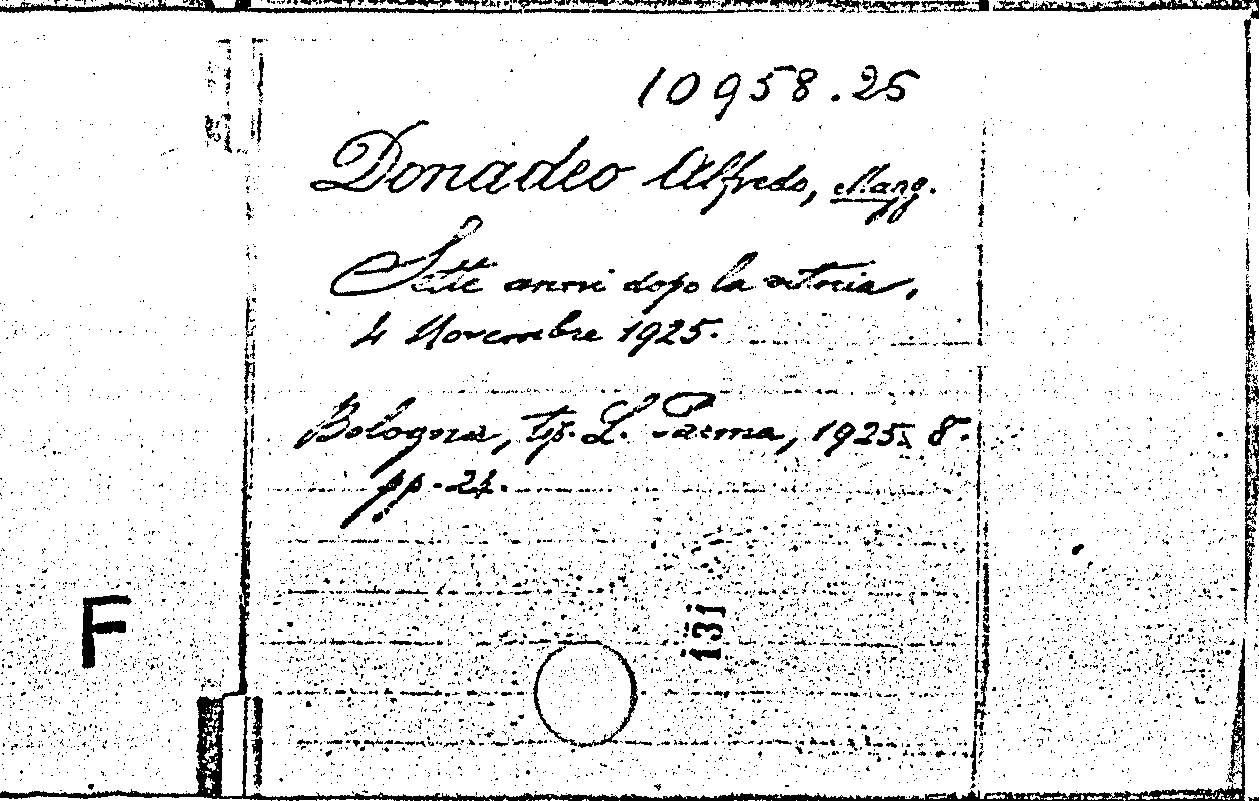 10958.25
Donadeo Alfredo, Magg.
Sette anni dopo la vittoria,
4 Novembre 1925.
Bologna, tip. L. Parma, 1925, 8.
pp. 24.
131
F